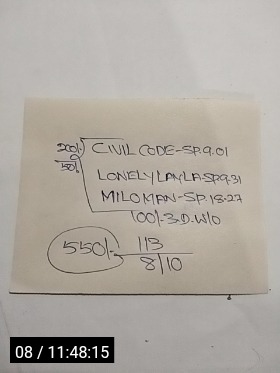 200/- CIVIL CODE-SP.9.01
50/-
LONELY LAYLA-SP.9.31
MILOMAN-SP.18.27
100/- 3.D.W/O
550/- 113
8/10
08 / 11:48:15